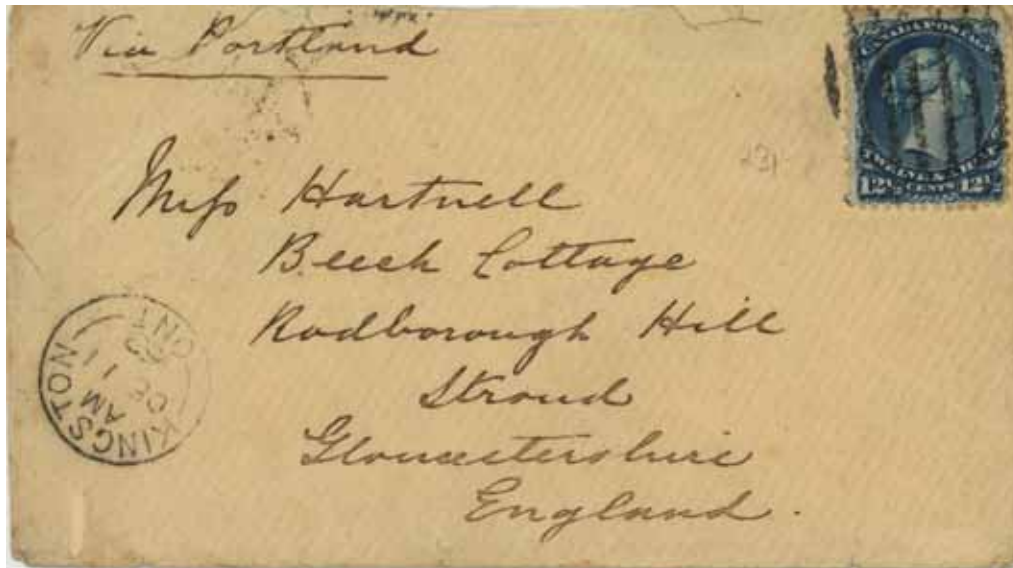 Via Portland
CANADA POSTAGE
12½ CENTS 12½
231
Miss Hartnell
Beech Cottage
Rodborough Hill
Stroud
Gloucestershire
England.
KINGSTON
ONT
AM
DE 1